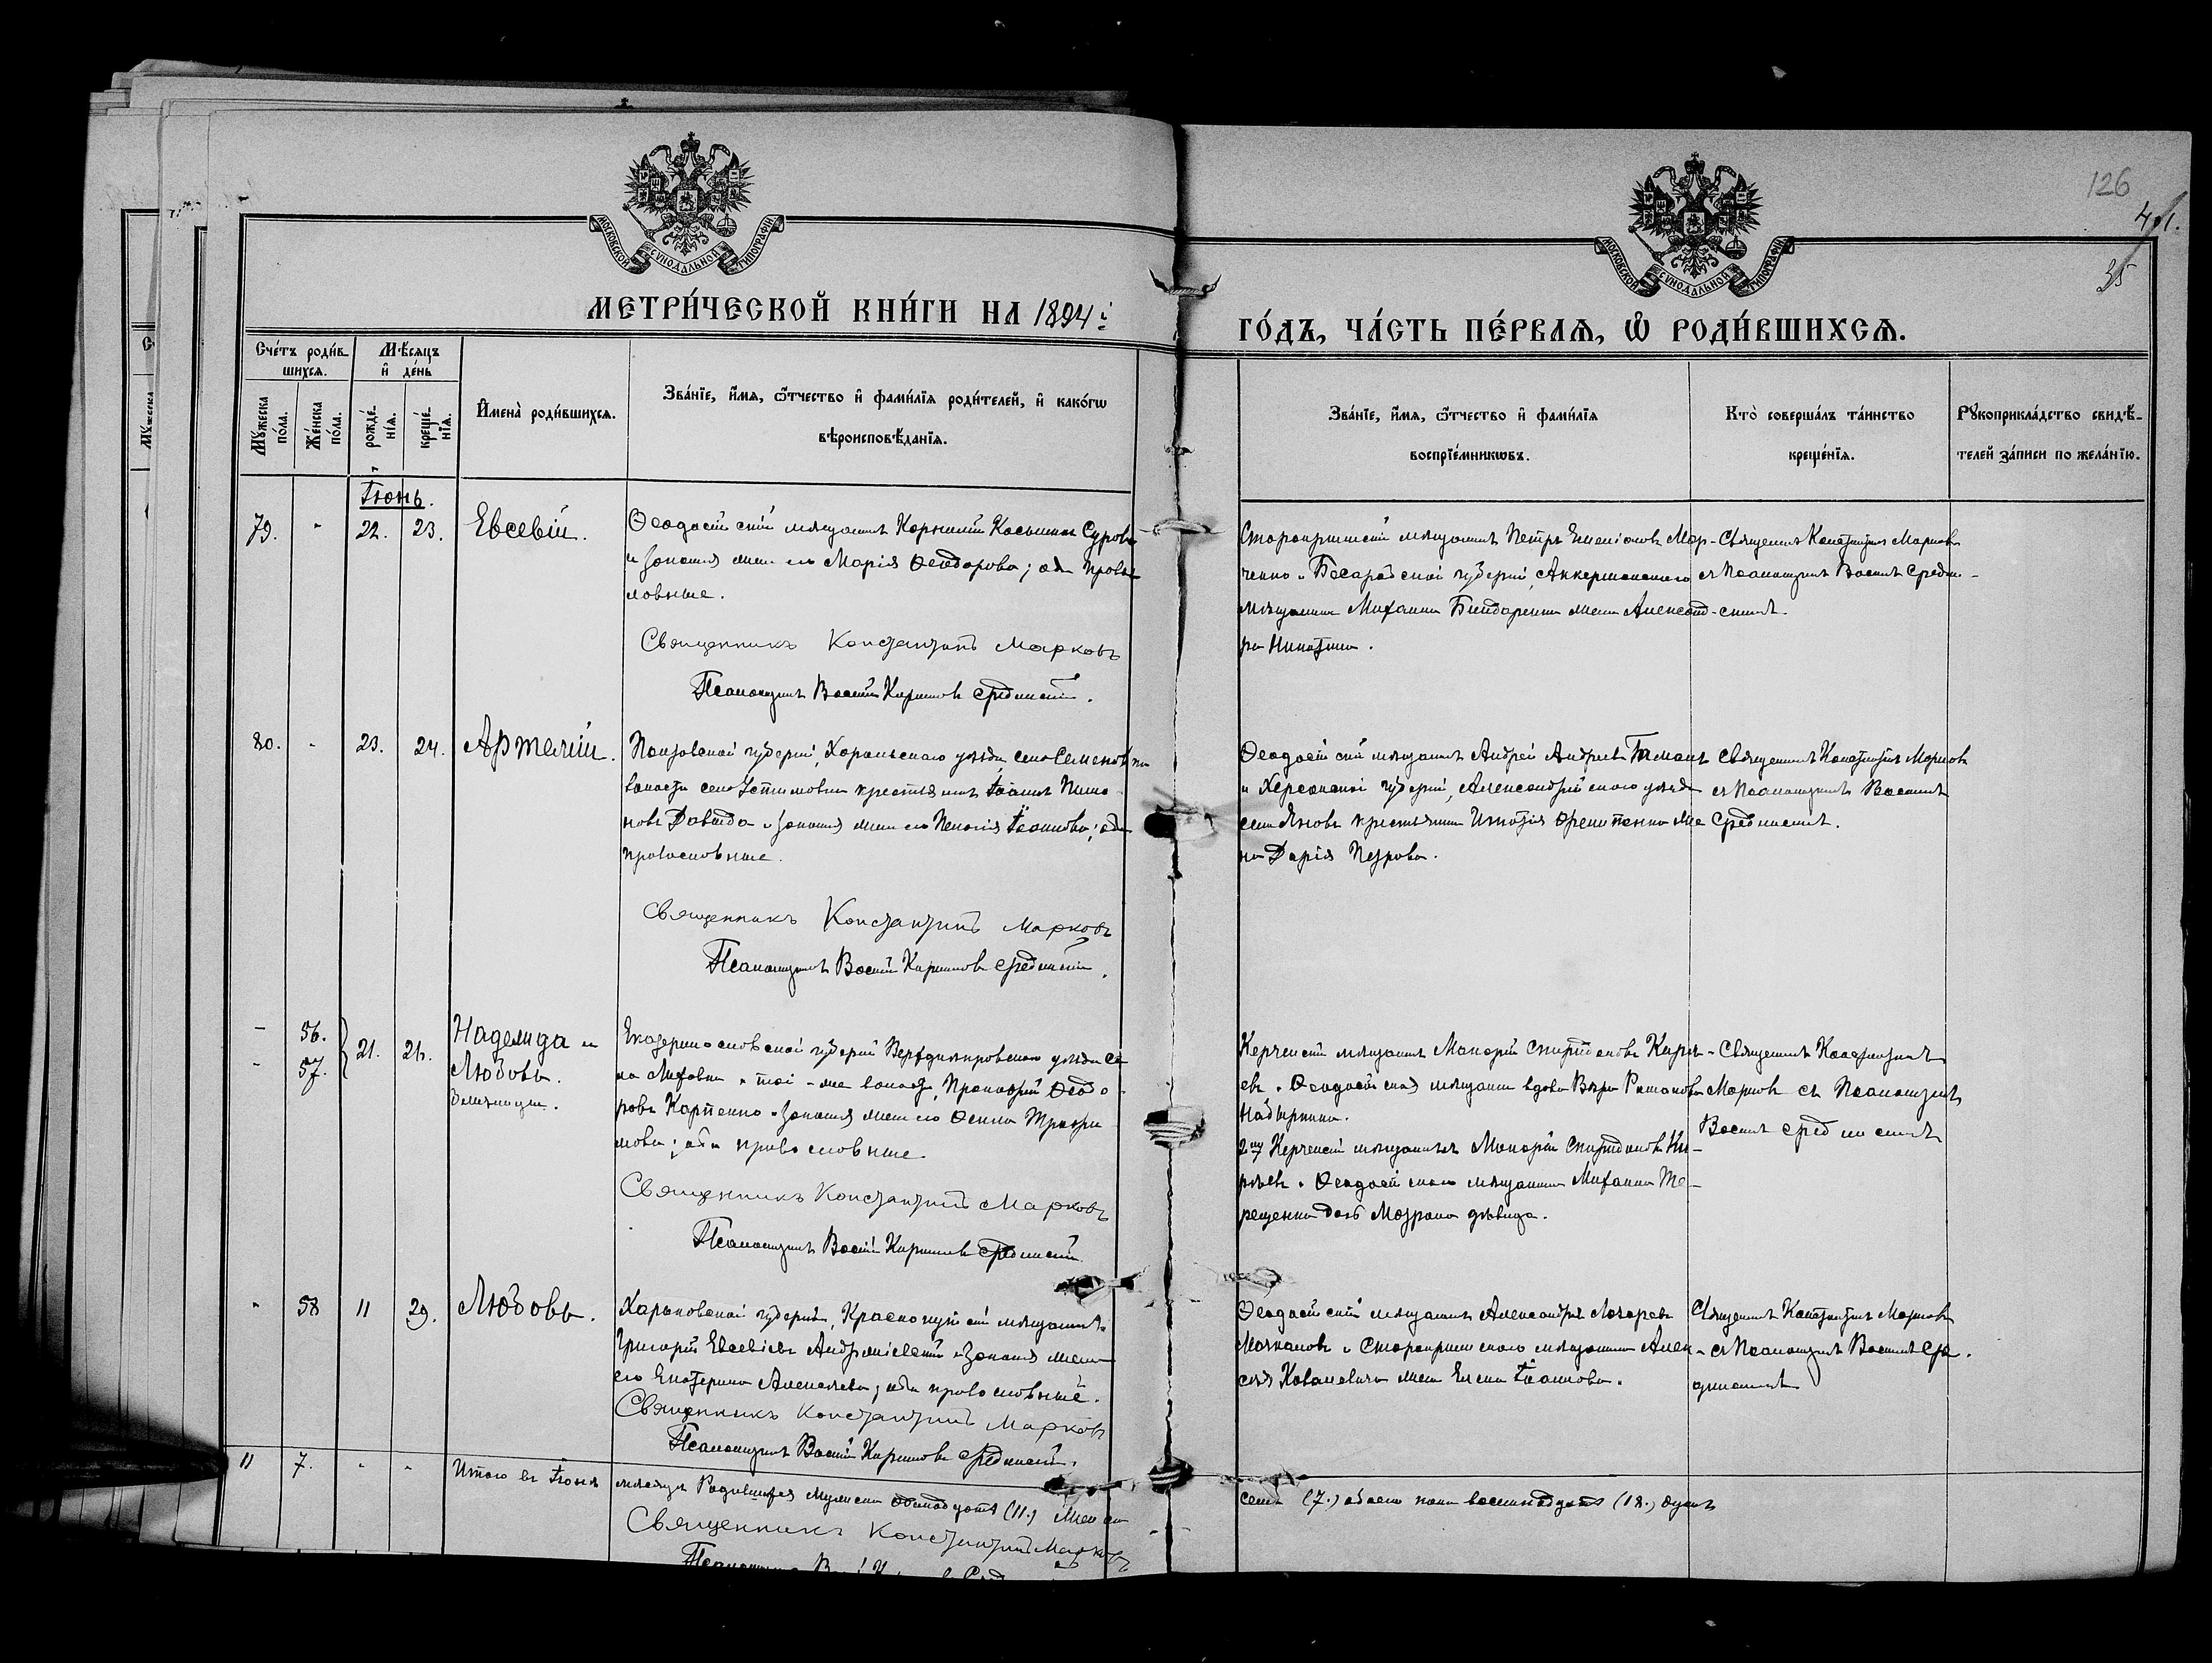 126
401.
35
МОСКОВСКОЙ СѴНОДАЛЬНОЙ ТИПОГРАФІИ
МОСКОВСКОЙ СѴНОДАЛЬНОЙ ТИПОГРАФІИ
МЕТРИ́ЧЕСКОЙ КНИ́ГИ НА 1894 г.
ГО́ДЪ, ЧА́СТЬ ПЕ́РВАѦ, Ѡ҆ РОДИ́ВШИХСѦ.
Сче́тъ роди́в
шихсѧ.
Мꙋ́жеска по́ла.
Же́нска по́ла.
Мѣ́сѧцъ
и҆ де́нь
рожде́нїѧ.
креще́нїѧ.
И҆мена̀ роди́вшихсѧ.
Зва́нїе, и҆́мѧ, ѻ҆́тчество и҆ фами́лїѧ роди́телей, и҆ како́гѡ
вѣроисповѣ́данїѧ.
Зва́нїе, и҆́мѧ, ѻ҆́тчество и҆ фами́лїѧ
воспрїе́мникѡвъ.
Кто̀ соверша́лъ та́инство
креще́нїѧ.
Рꙋкоприкла́дство свидѣ́-
телей за́писи по жела́нїю.
Іюнь.
79. - 22. 23. Евсевій.
Ѳеодосійскій мѣщанинъ Корнилій Касьяновъ Суровъ
и законная жена его Марія Ѳеодорова; оба правос
лавные.
Священникъ Константинъ Марковъ
Псаломщикъ Василій Средин­скій.
Старокрымскій мѣщанинъ Петръ Мар-
ченко и Бессарабской губерніи, Аккерманскаго
мѣщанина Михаила Бондаренко жена Александ-
ра Никитина.
Священникъ Константинъ Марковъ
съ Псаломщикомъ Василіемъ Средин-
скимъ.
80. - 23. 24. Артемій.
Полтавской губерніи, Хорольскаго уѣзда, села Семеновки
волости села Устимовки крестьянинъ Іоаннъ
Давыда и законная жена его Пелагія Іоаннова; оба
православные.
Священникъ Константинъ Марковъ
Псаломщикъ Василій Средин­скій.
Ѳеодосійскій мѣщанинъ Андрей Андреевъ
и Херсонской губерніи, Александрійскаго уѣзда
крестьянина Игнатія же
на Дарія Петрова.
Священникъ Константинъ Марковъ
съ Псаломщикомъ Василіемъ
Срединскимъ.
- 56. 21. 26. Надежда и
- 57. Любовь.
близнецы.
Екатеринославской губерніи Верхднѣпровскаго уѣзда се
ла Лиховки и той-же волости, Прокофій Ѳеодо
ровъ Карпенко и законная жена его Ѳекла Трофи
мова; оба православные.
Священникъ Константинъ Марковъ
Псаломщикъ Василій Средин­скій
Керченскій мѣщанинъ Макарій Спиридоновъ Кирѣ-
евъ и Ѳеодосійская мѣщанка вдова Вѣра Романова
2-ой Керченскій мѣщанинъ Макарій Спиридоновъ Ки-
рѣевъ и Ѳеодосійскаго мѣщанина Михаила Те-
рещенко дочь Матрона дѣвица.
Священникъ Константинъ
Марковъ съ Псаломщикомъ
Василіемъ Срединскимъ
- 58 11 29. Любовь.
Харьковской губерніи, Краснокутскій мѣщанинъ
Григорій Евсевіевъ и законная жена
его Екатерина Алексѣева; оба православные.
Священникъ Константинъ Марковъ
Псаломщикъ Василій Средин­скій.
Ѳеодосійскій мѣщанинъ Александръ Лазаревъ
и Старокрымскаго мѣщанина Алек-
сѣя жена Елена Іоаннова.
Священникъ Константинъ Марковъ
съ Псаломщикомъ Василіемъ Сре-
динскимъ
11 7. - - Итого въ Іюнѣ мѣсяцѣ Родившихся мужеска одинадцать (11.) женска
семь (7.) обоего пола восемнадцать (18.) душъ
Священникъ Константинъ Марковъ